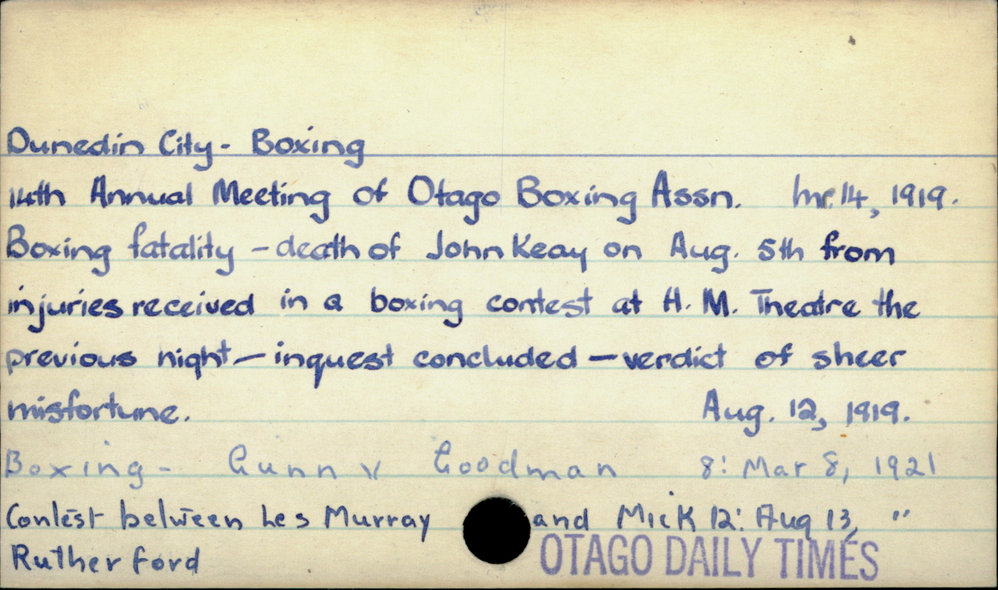 Dunedin City - Boxing
14th Annual Meeting of Otago Boxing Assn. 14, 1919.
Boxing fatality - death of John Keay on Aug. 5th from
injuries received in a boxing contest at H. M. Theatre the
previous night - inquest concluded - verdict of sheer
misfortune. Aug. 12, 1919.
Boxing - Gunn v Goodman 8: Mar 8, 1921
Contest between Les Murray and Mick 12: Aug 13, "
Rutherford
OTAGO DAILY TIMES